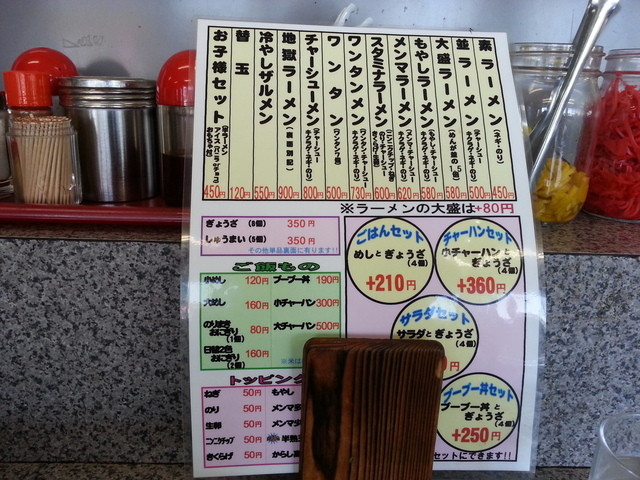 素ラーメン (ネギ・のり) 450円
並ラーメン (チャーシュー キクラゲ・ネギ・のり) 500円
大盛ラーメン (めんが並の1.5倍) 580円
もやしラーメン (もやし・チャーシュー キクラゲ・ネギ・のり) 580円
メンマラーメン (メンマ・チャーシュー キクラゲ・ネギ・のり) 620円
スタミナラーメン 600円
ワンタンメン (ワンタン・チャーシュー キクラゲ・ネギ・のり) 730円
ワンタン 500円
チャーシューメン (チャーシュー キクラゲ・ネギ・のり) 800円
地獄ラーメン (裏面別記) 900円
冷やしザルメン 550円
替玉 120円
お子様セット 450円
※ラーメンの大盛は+80円
ぎょうざ (8個) 350円
しゅうまい (5個) 350円
その他単品裏面に有ります!!
ご飯もの
小めし 120円
大めし 160円
のりまき おにぎり (1個) 80円
日替2色 おにぎり (2個) 160円
ブーブー丼 190円
小チャーハン 300円
大チャーハン 500円
トッピング
ねぎ 50円
のり 50円
生卵 50円
ニンニクチップ 50円
きくらげ 50円
もやし
メンマ
メンマ
半熟
からし高
ごはんセット
めしとぎょうざ
(4個)
+210円
チャーハンセット
小チャーハンと
ぎょうざ
(4個)
+360円
サラダセット
サラダとぎょうざ
(4個)
円
ブーブー丼セット
ブーブー丼と
ぎょうざ
(4個)
+250円
セットにできます!!